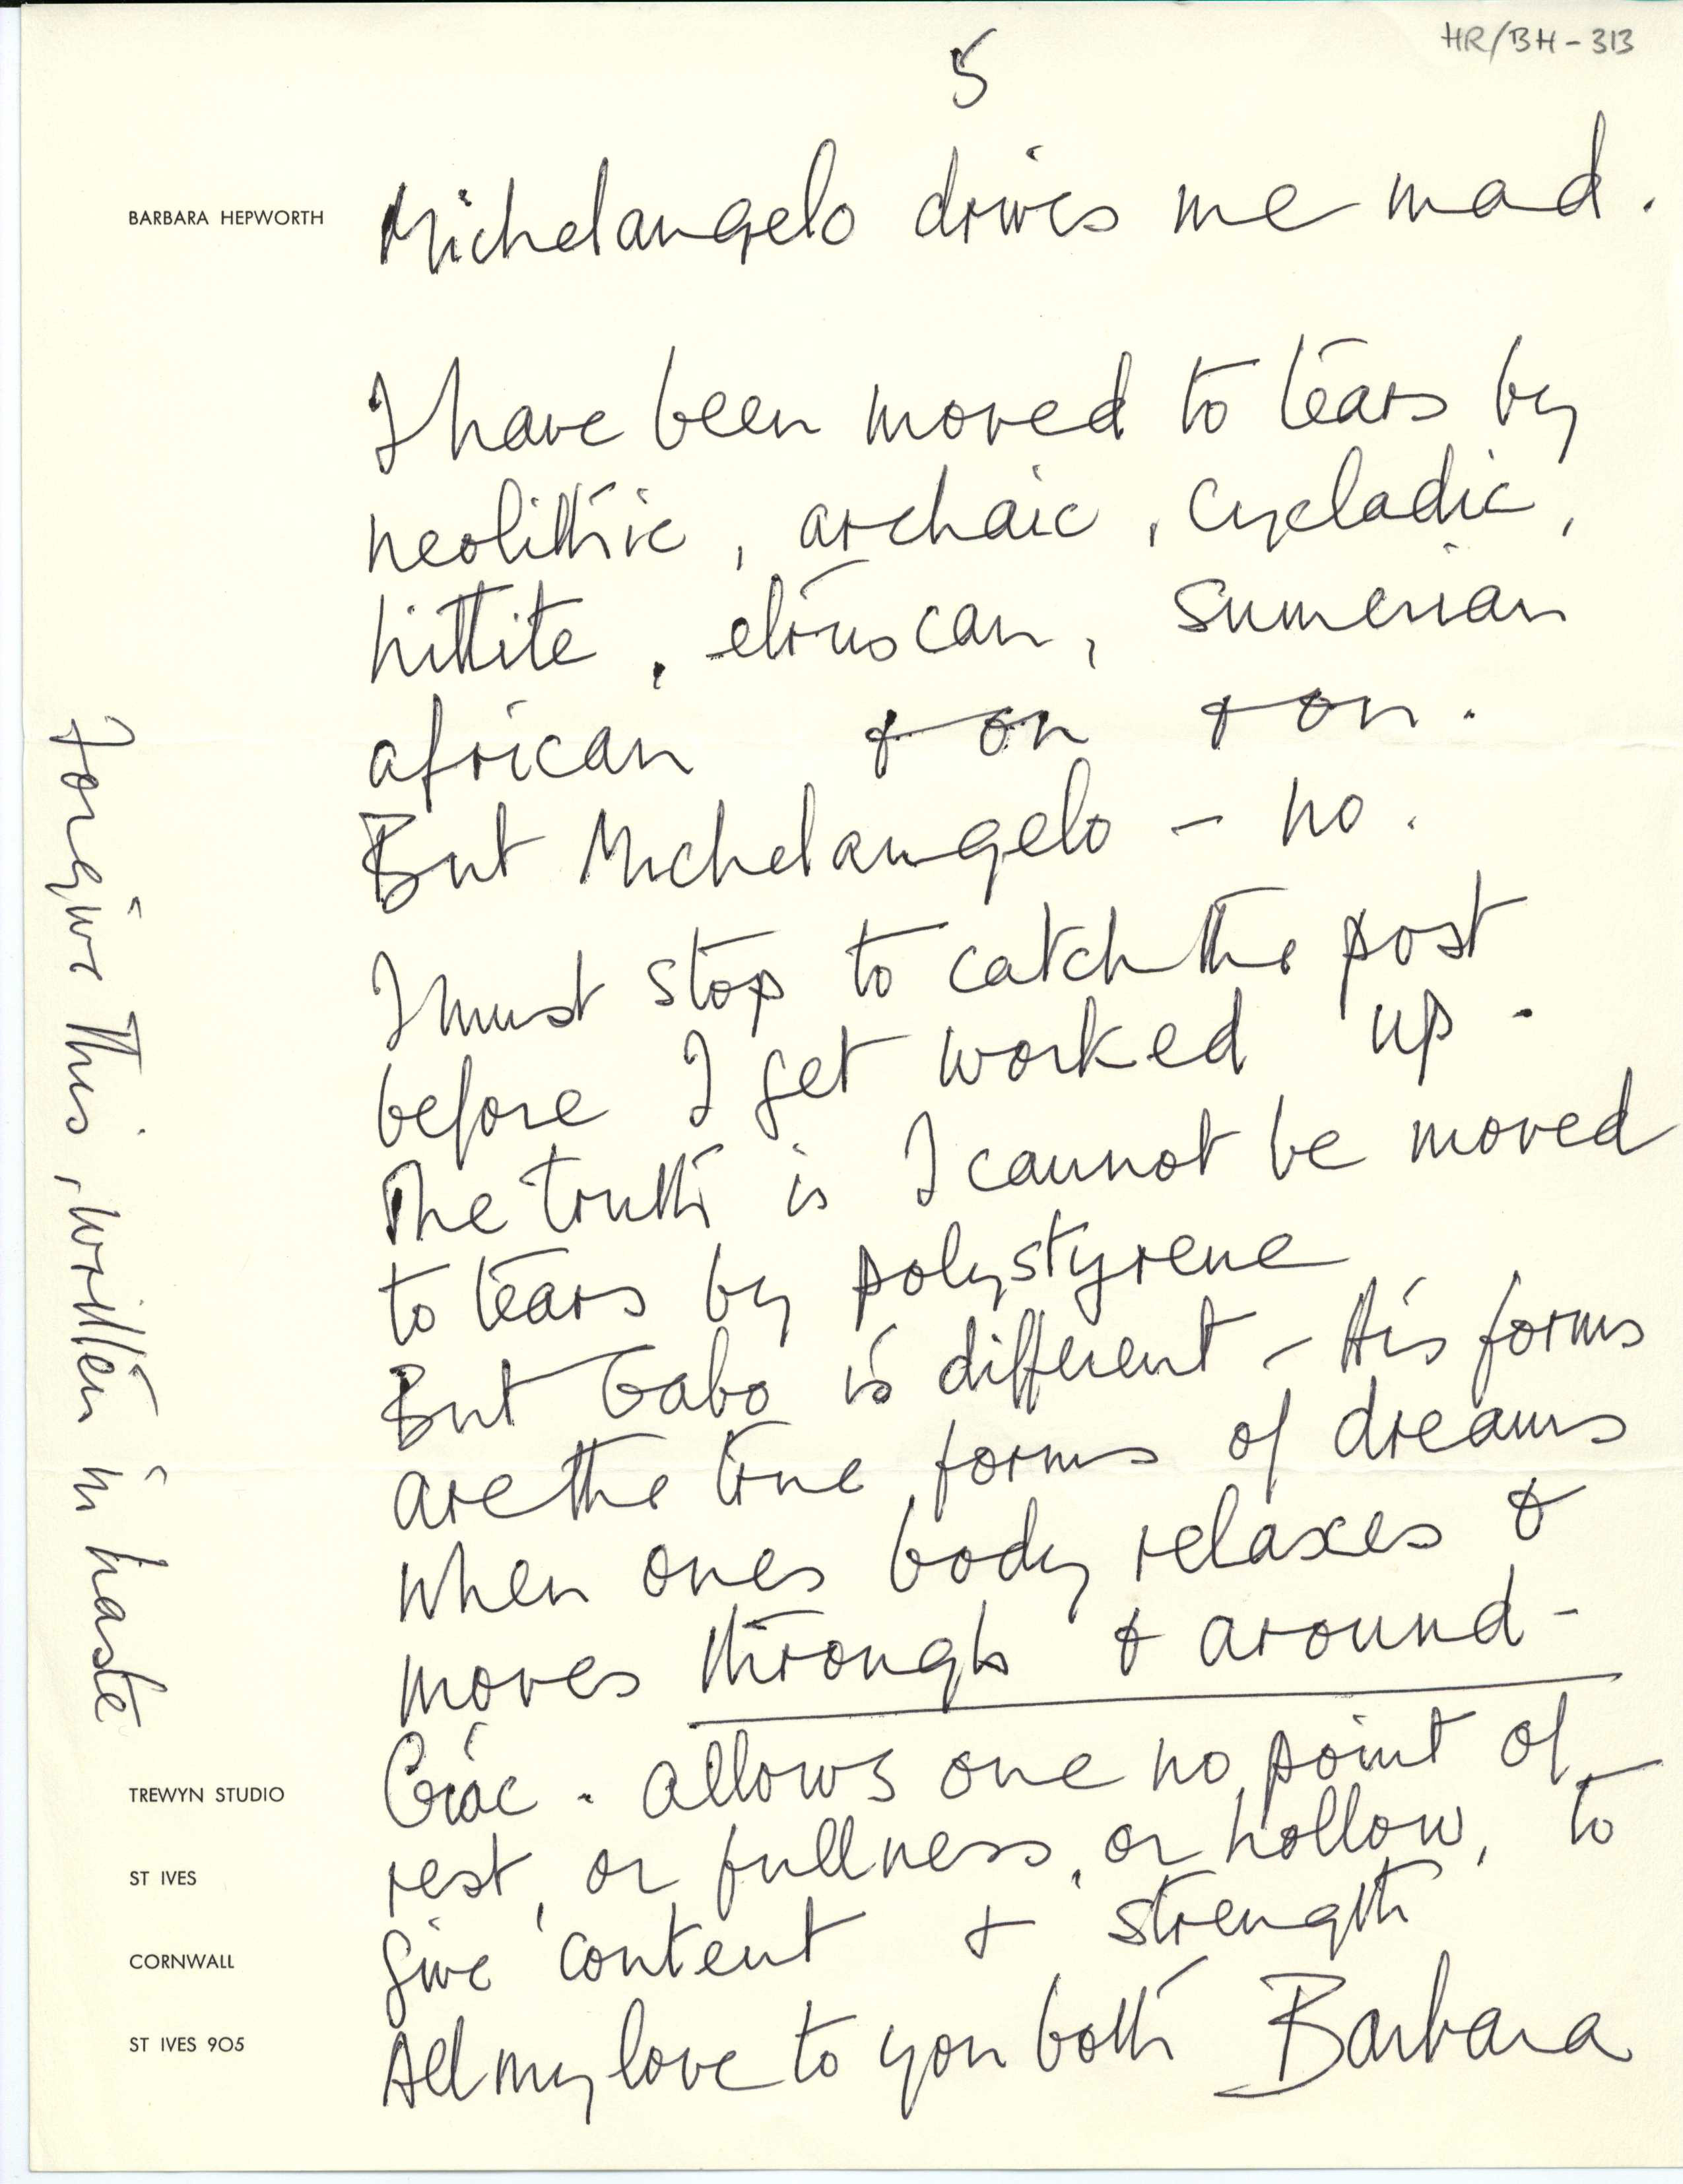 HR/BH-313
5
BARBARA HEPWORTH
Michelangelo drives me mad.
I have been moved to tears by
neolithic, archaic, Cycladic,
hittite, etruscan, Sumerian
african & on & on.
But Michelangelo – no.
I must stop to catch the post
before I get worked up.
The truth is I cannot be moved
to tears by polystyrene
But Gabo is different – His forms
are the true forms of dreams
when ones body relaxes &
moves through & around –
Giac. allows one no point of
rest, or fullness, or hollow, to
give content & strength
All my love to you both Barbara
Forgive this, written in haste
TREWYN STUDIO
ST IVES
CORNWALL
ST IVES 905